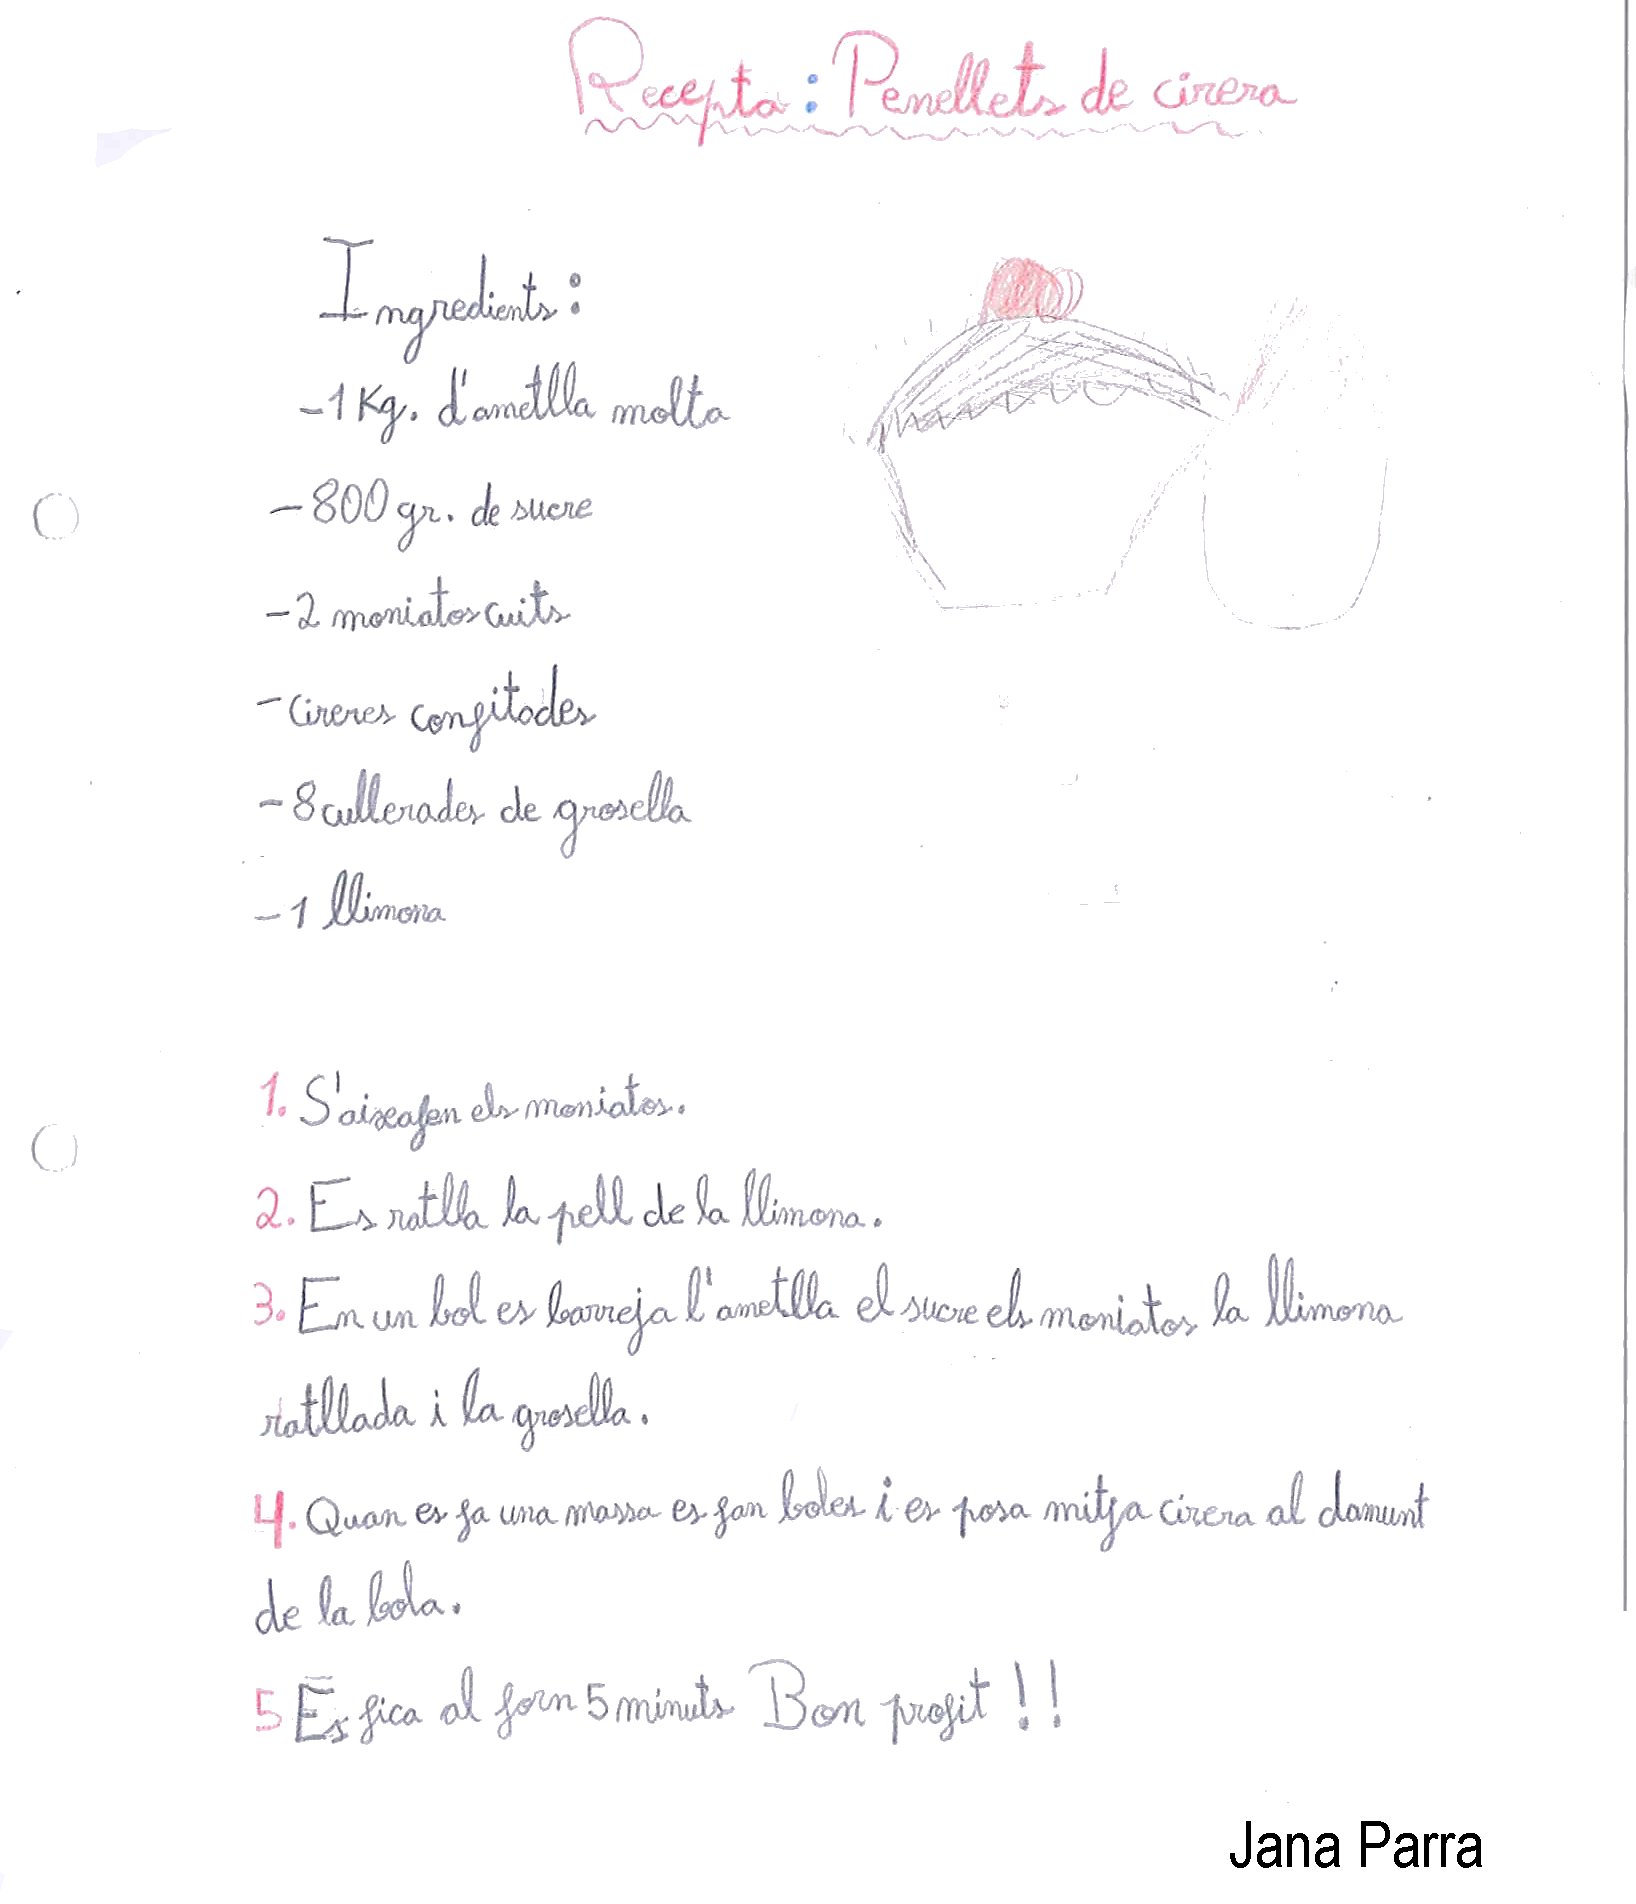 Recepta: Penellets de cirera
Ingredients:
-1 Kg. d'ametlla molta
-800 gr. de sucre
-2 moniatos cuits
-Cireres confitades
-8 cullerades de grosella
-1 llimona
1. S'aixafen els moniatos.
2. Es ratlla la pell de la llimona.
3. En un bol es barreja l'ametlla el sucre els moniatos la llimona
ratllada i la grosella.
4. Quan es fa una massa es fan boles i es posa mitja cirera al damunt
de la bola.
5 Es fica al forn 5 minuts Bon profit!!
Jana Parra